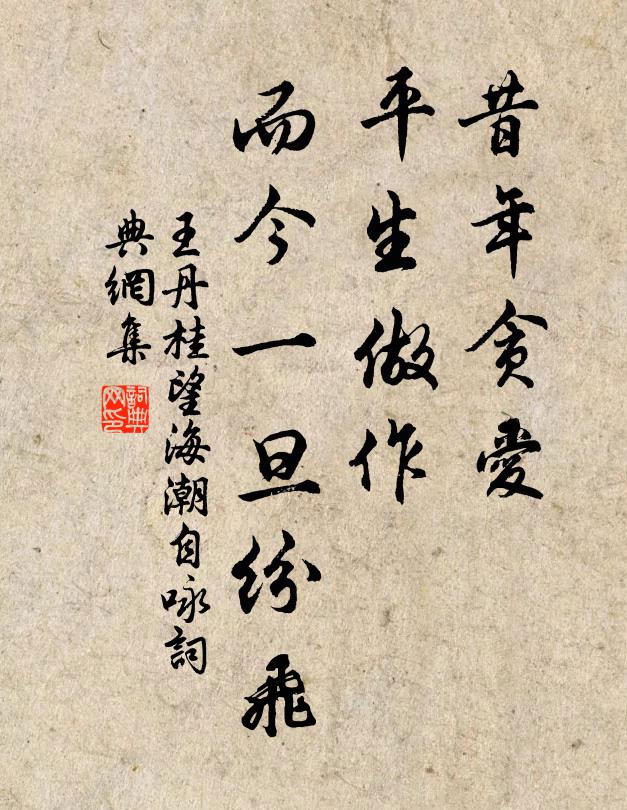 昔年貪愛
平生做作
而今一旦紛飛
王丹桂望海潮自咏詞
典網集
詞典
网印